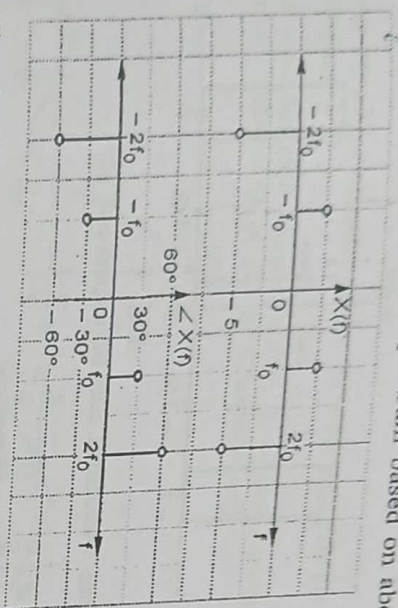 based on
X(f)
−2f₀ −f₀ 0 f₀ 2f₀ f
−5
∠X(f)
60°
30°
−2f₀ −f₀ 0 f₀ 2f₀ f
−30°
−60°